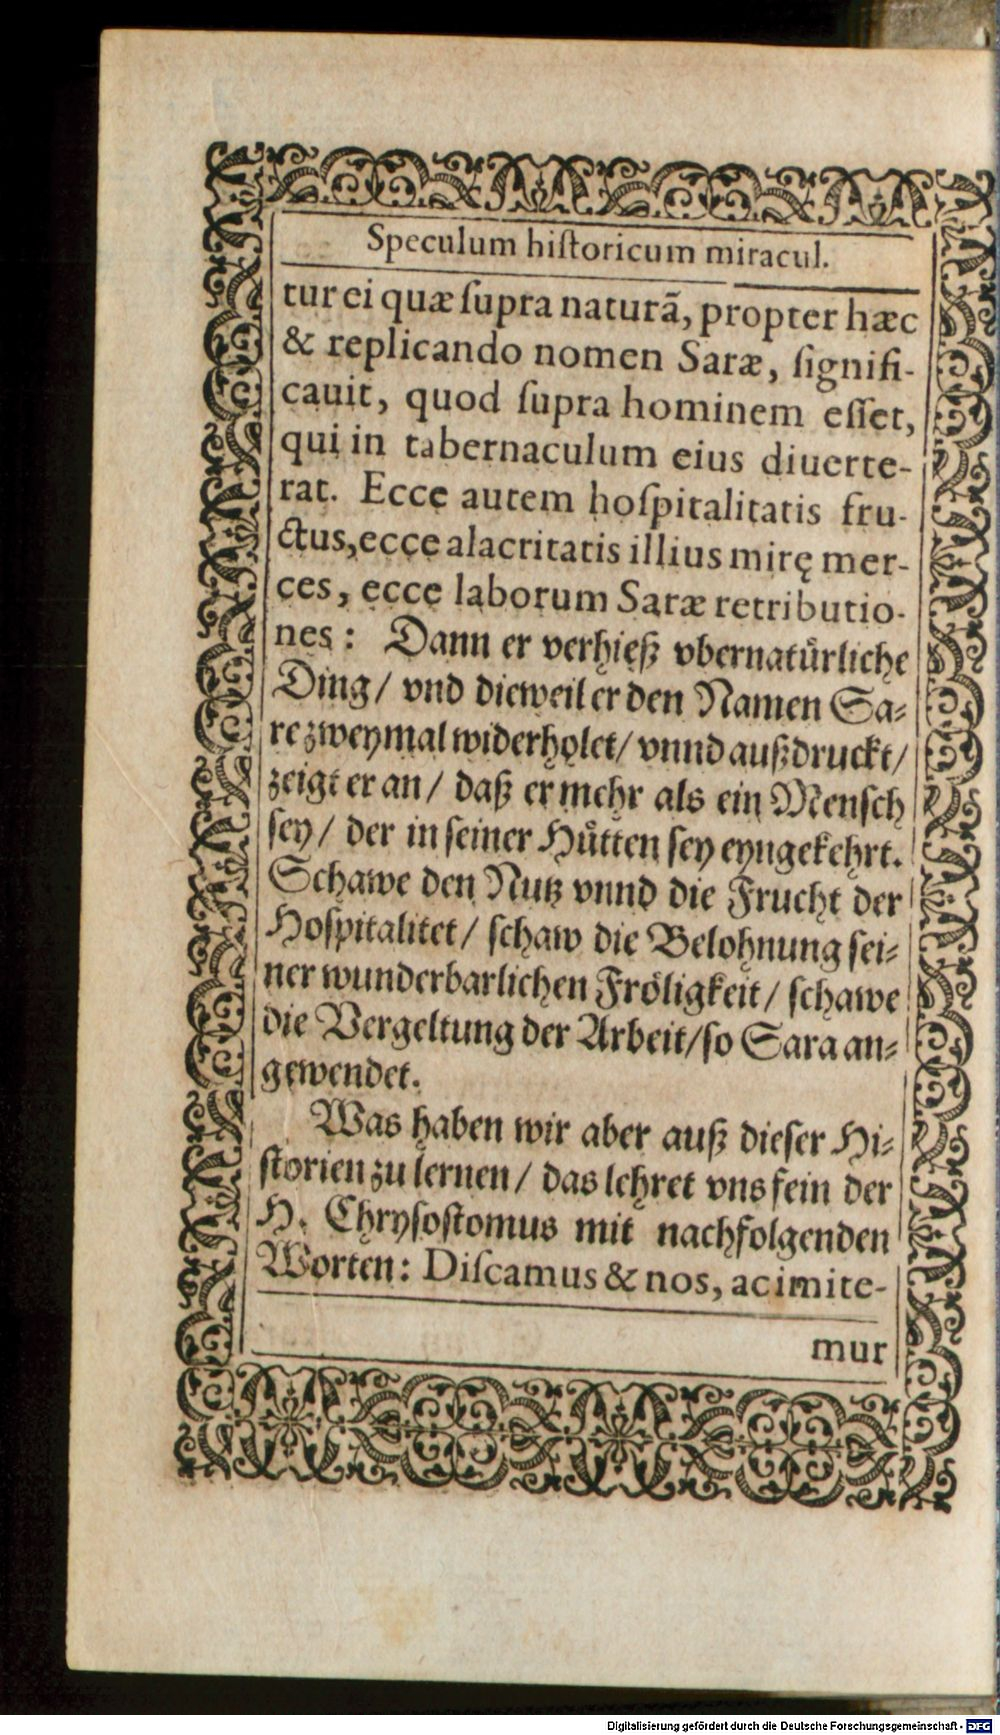 Speculum hiſtoricum miracul.
tur ei quæ ſupra naturã, propter hæc
& replicando nomen Saræ, ſignifi-
cauit, quod ſupra hominem eſſet,
qui in tabernaculum eius diuerte-
rat. Ecce autem hoſpitalitatis fru-
ctus, ecce alacritatis illius mirę mer-
ces, ecce laborum Saræ retributio-
nes: Dann er verhieß vbernatuͤrliche
Ding/ vnd dieweil er den Namen Sa-
re zweymal widerholet/ vnnd außdruckt/
zeigt er an/ daß er mehr als ein Menſch
ſey/ der in ſeiner Huͤtten ſey eyngekehrt.
Schawe den Nutz vnnd die Frucht der
Hoſpitalitet/ ſchaw die Belohnung ſei-
ner wunderbarlichen Froͤligkeit/ ſchawe
die Vergeltung der Arbeit/ ſo Sara an-
gewendet.
Was haben wir aber auß dieſer Hi-
ſtorien zu lernen/ das lehret vns fein der
H. Chryſoſtomus mit nachfolgenden
Worten: Diſcamus & nos, ac imite-
mur
Digitalisierung gefördert durch die Deutsche Forschungsgemeinschaft - DFG